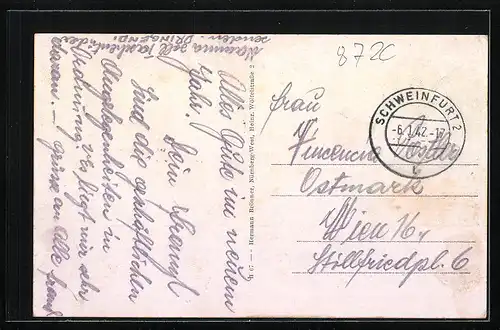 Mamma soll Taschentücher
senden. DRINGEND!
Alles Gute im neuen
Jahr!
Dein Franzl
Sind die geschäftlichen
Angelegenheiten in
Ordnung? es liegt mir sehr
daran. – Grüsse an Alle Franzl
b 67 — Hermann Reisner, Nürnberg-West, Heinr. Wölfelstraße 2
872C
SCHWEINFURT 2
-6.1.42.-17
b
Frau
Vincencia
Ostmark
Wien 16
Stillfriedpl. 6